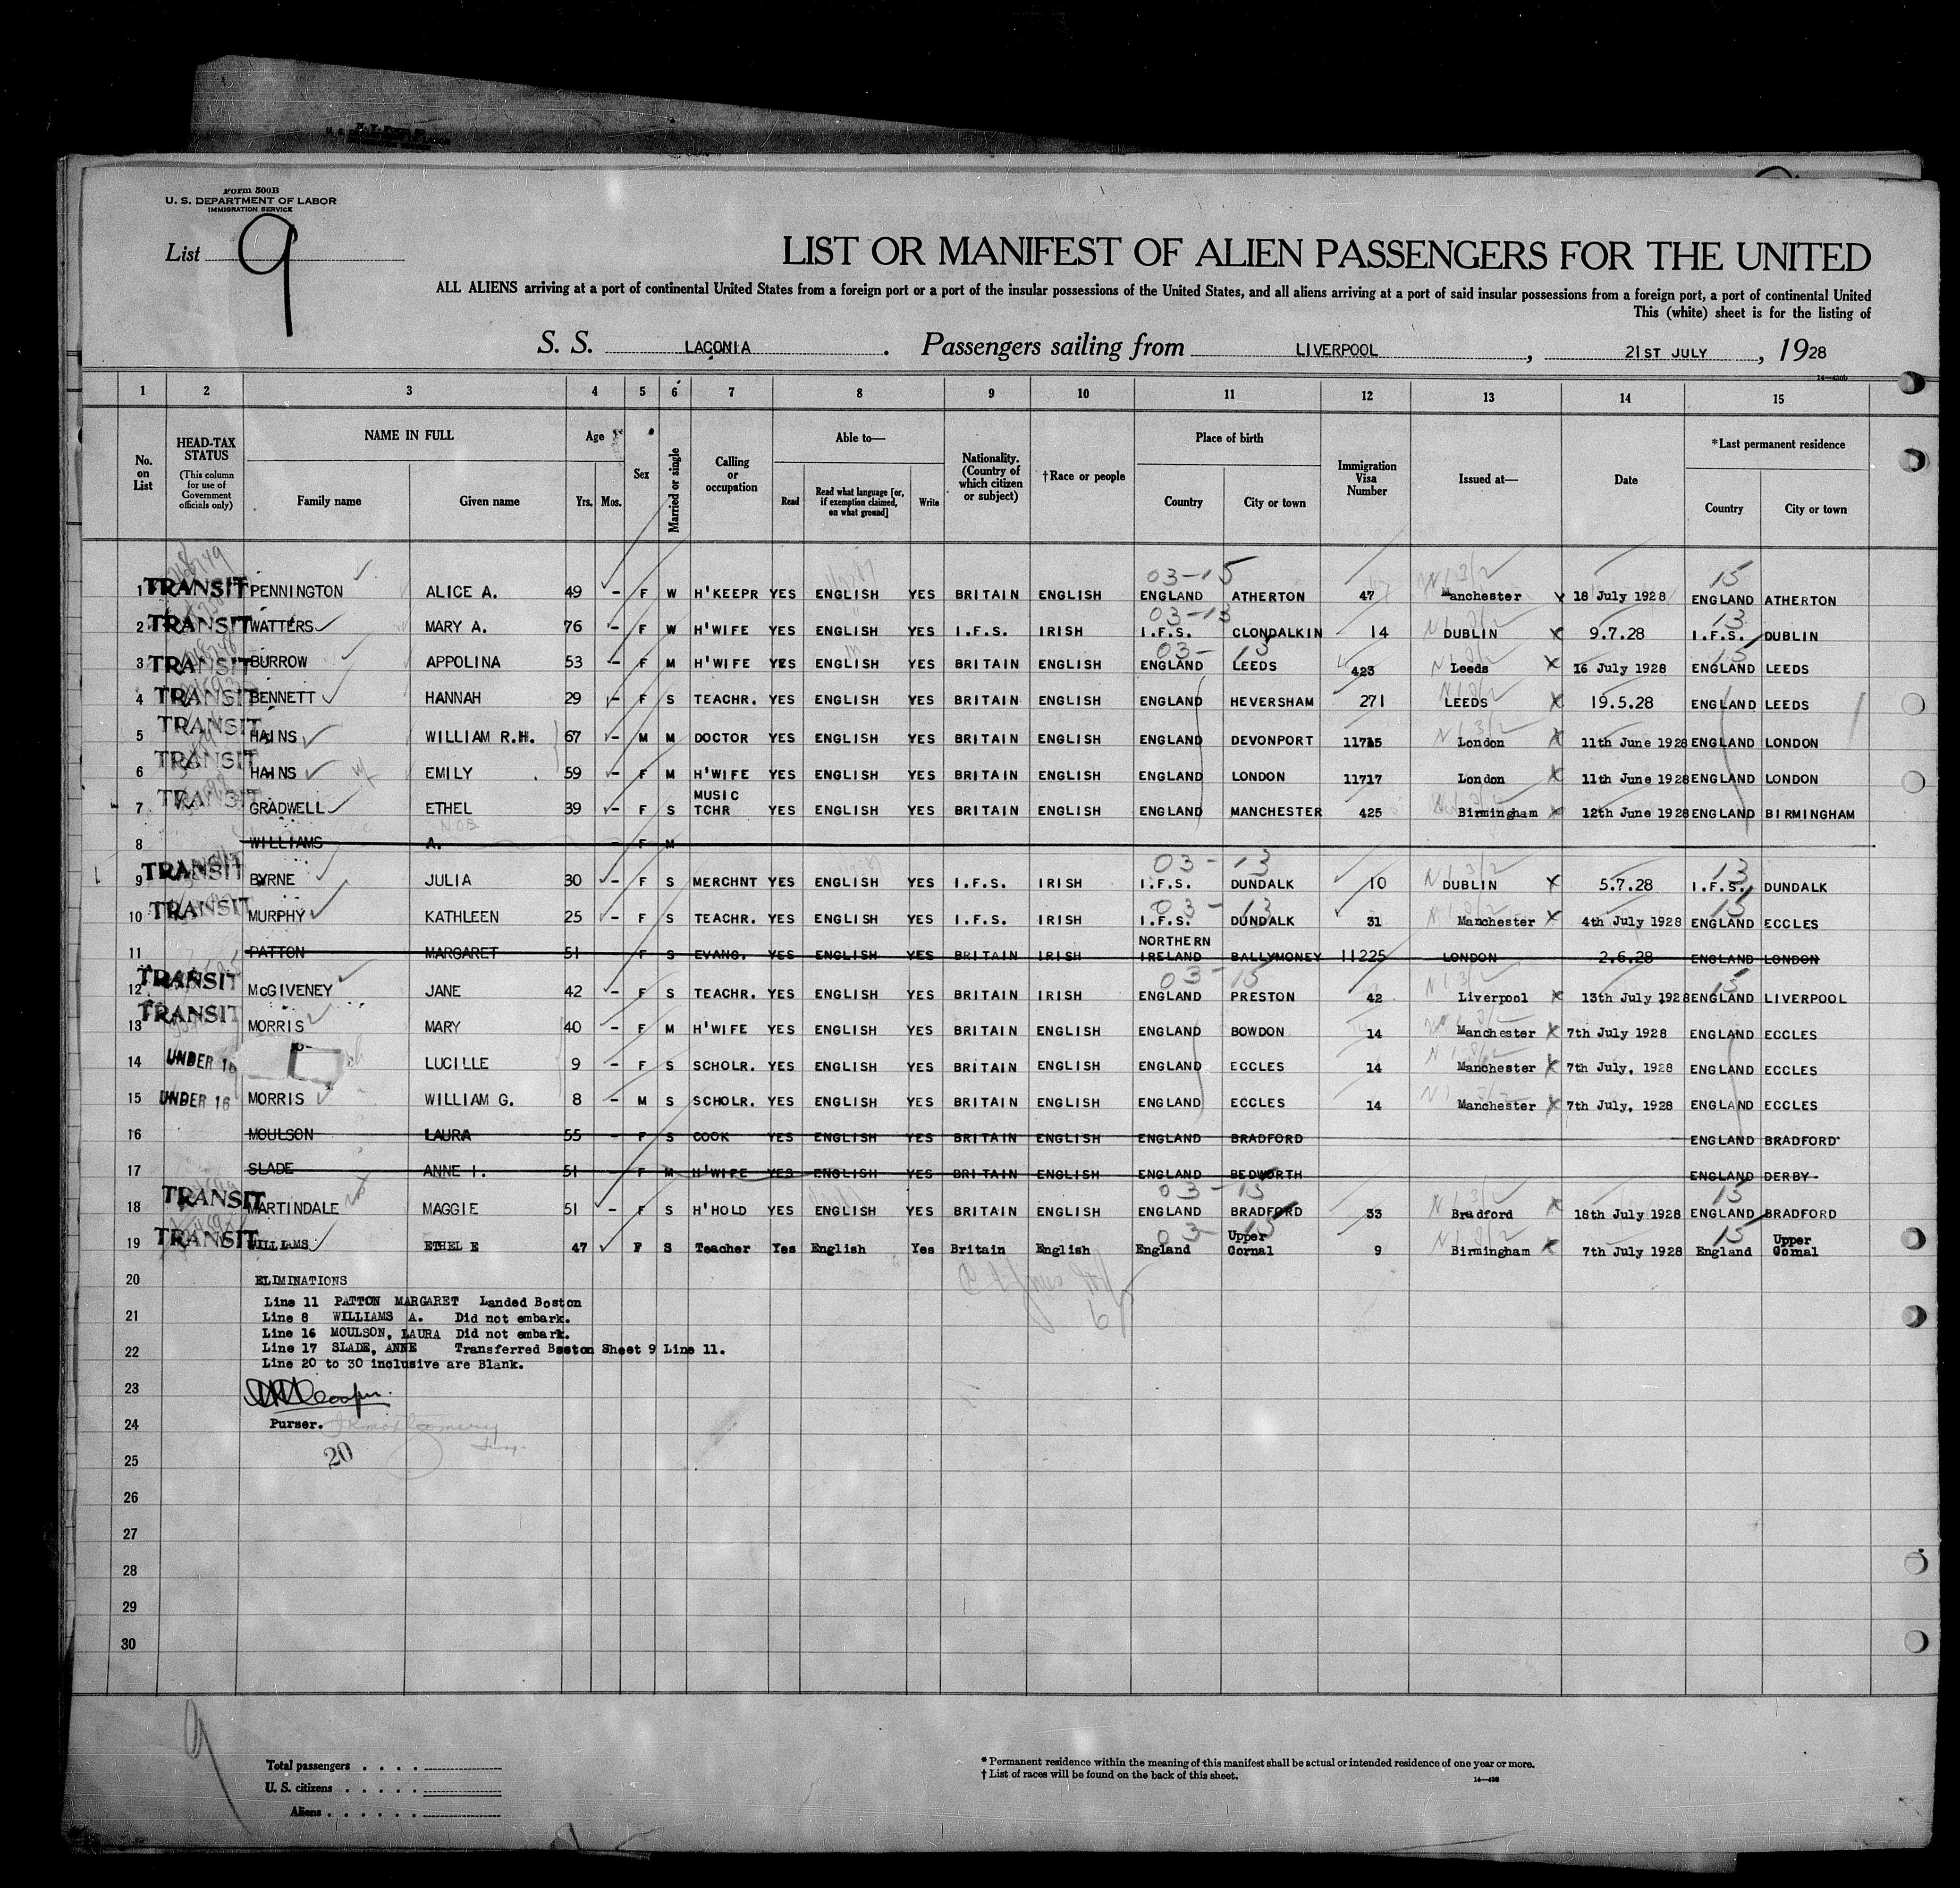 Form 500B
U. S. DEPARTMENT OF LABOR
IMMIGRATION SERVICE
List 9
LIST OR MANIFEST OF ALIEN PASSENGERS FOR THE UNITED
ALL ALIENS arriving at a port of continental United States from a foreign port or a port of the insular possessions of the United States, and all aliens arriving at a port of said insular possessions from a foreign port, a port of continental United
This (white) sheet is for the listing of
S. S. LACONIA. Passengers sailing from LIVERPOOL, 21ST JULY, 1928
1 2 3 4 5 6 7 8 9 10 11 12 13 14 15
No. on List
HEAD-TAX STATUS (This column for use of Government officials only)
NAME IN FULL Family name Given name
Age Yrs. Mos.
Sex
Married or single
Calling or occupation
Able to— Read Read what language [or, if exemption claimed, on what ground] Write
Nationality. (Country of which citizen or subject)
†Race or people
Place of birth Country City or town
Immigration Visa Number
Issued at—
Date
*Last permanent residence Country City or town
03-15 15
1 TRANSIT PENNINGTON ALICE A. 49 - F W H'KEEPR YES ENGLISH YES BRITAIN ENGLISH ENGLAND ATHERTON 47 Manchester 18 July 1928 ENGLAND ATHERTON
03-13 13
2 TRANSIT WATTERS MARY A. 76 - F W H'WIFE YES ENGLISH YES I.F.S. IRISH I.F.S. CLONDALKIN 14 DUBLIN X 9.7.28 I.F.S. DUBLIN
03-15 15
3 TRANSIT BURROW APPOLINA 53 - F M H'WIFE YES ENGLISH YES BRITAIN ENGLISH ENGLAND LEEDS 423 Leeds X 16 July 1928 ENGLAND LEEDS
4 TRANSIT BENNETT HANNAH 29 - F S TEACHR. YES ENGLISH YES BRITAIN ENGLISH ENGLAND HEVERSHAM 271 LEEDS X 19.5.28 ENGLAND LEEDS
5 TRANSIT HAINS WILLIAM R.H. 67 - M M DOCTOR YES ENGLISH YES BRITAIN ENGLISH ENGLAND DEVONPORT 11715 London X 11th June 1928 ENGLAND LONDON
6 TRANSIT HAINS EMILY 59 - F M H'WIFE YES ENGLISH YES BRITAIN ENGLISH ENGLAND LONDON 11717 London X 11th June 1928 ENGLAND LONDON
7 TRANSIT GRADWELL ETHEL 39 - F S MUSIC TCHR YES ENGLISH YES BRITAIN ENGLISH ENGLAND MANCHESTER 425 Birmingham X 12th June 1928 ENGLAND BIRMINGHAM
8 WILLIAMS A. - F M
03-13 13
9 TRANSIT BYRNE JULIA 30 - F S MERCHNT YES ENGLISH YES I.F.S. IRISH I.F.S. DUNDALK 10 DUBLIN X 5.7.28 I.F.S. DUNDALK
03-13 15
10 TRANSIT MURPHY KATHLEEN 25 - F S TEACHR. YES ENGLISH YES I.F.S. IRISH I.F.S. DUNDALK 31 Manchester X 4th July 1928 ENGLAND ECCLES
11 PATTON MARGARET 51 F S EVANG. YES ENGLISH YES BRITAIN IRISH NORTHERN IRELAND BALLYMONEY 11225 LONDON 2.6.28 ENGLAND LONDON
03-15 15
12 TRANSIT McGIVENEY JANE 42 - F S TEACHR. YES ENGLISH YES BRITAIN IRISH ENGLAND PRESTON 42 Liverpool X 13th July 1928 ENGLAND LIVERPOOL
13 TRANSIT MORRIS MARY 40 - F M H'WIFE YES ENGLISH YES BRITAIN ENGLISH ENGLAND BOWDON 14 Manchester X 7th July 1928 ENGLAND ECCLES
14 UNDER 16 LUCILLE 9 - F S SCHOLR. YES ENGLISH YES BRITAIN ENGLISH ENGLAND ECCLES 14 Manchester X 7th July, 1928 ENGLAND ECCLES
15 UNDER 16 MORRIS WILLIAM G. 8 - M S SCHOLR. YES ENGLISH YES BRITAIN ENGLISH ENGLAND ECCLES 14 Manchester X 7th July, 1928 ENGLAND ECCLES
16 MOULSON LAURA 55 - F S COOK YES ENGLISH YES BRITAIN ENGLISH ENGLAND BRADFORD ENGLAND BRADFORD
17 SLADE ANNE I. 51 - F M H'WIFE YES ENGLISH YES BRITAIN ENGLISH ENGLAND BEDWORTH ENGLAND DERBY
03-15 15
18 TRANSIT MARTINDALE MAGGIE 51 - F S H'HOLD YES ENGLISH YES BRITAIN ENGLISH ENGLAND BRADFORD 33 Bradford X 18th July 1928 ENGLAND BRADFORD
03-15 15
19 TRANSIT WILLIAMS ETHEL E 47 F S Teacher Yes English Yes Britain English England Upper Gornal 9 Birmingham X 7th July 1928 England Upper Gornal
20 ELIMINATIONS
Line 11 PATTON MARGARET Landed Boston
21 Line 8 WILLIAMS A. Did not embark.
Line 16 MOULSON, LAURA Did not embark.
22 Line 17 SLADE, ANNE Transferred Boston Sheet 9 Line 11.
Line 20 to 30 inclusive are Blank.
23
24 Purser.
20
25
26
27
28
29
30
9
Total passengers . . . .
U. S. citizens . . . . .
Aliens . . . . . .
* Permanent residence within the meaning of this manifest shall be actual or intended residence of one year or more.
† List of races will be found on the back of this sheet.